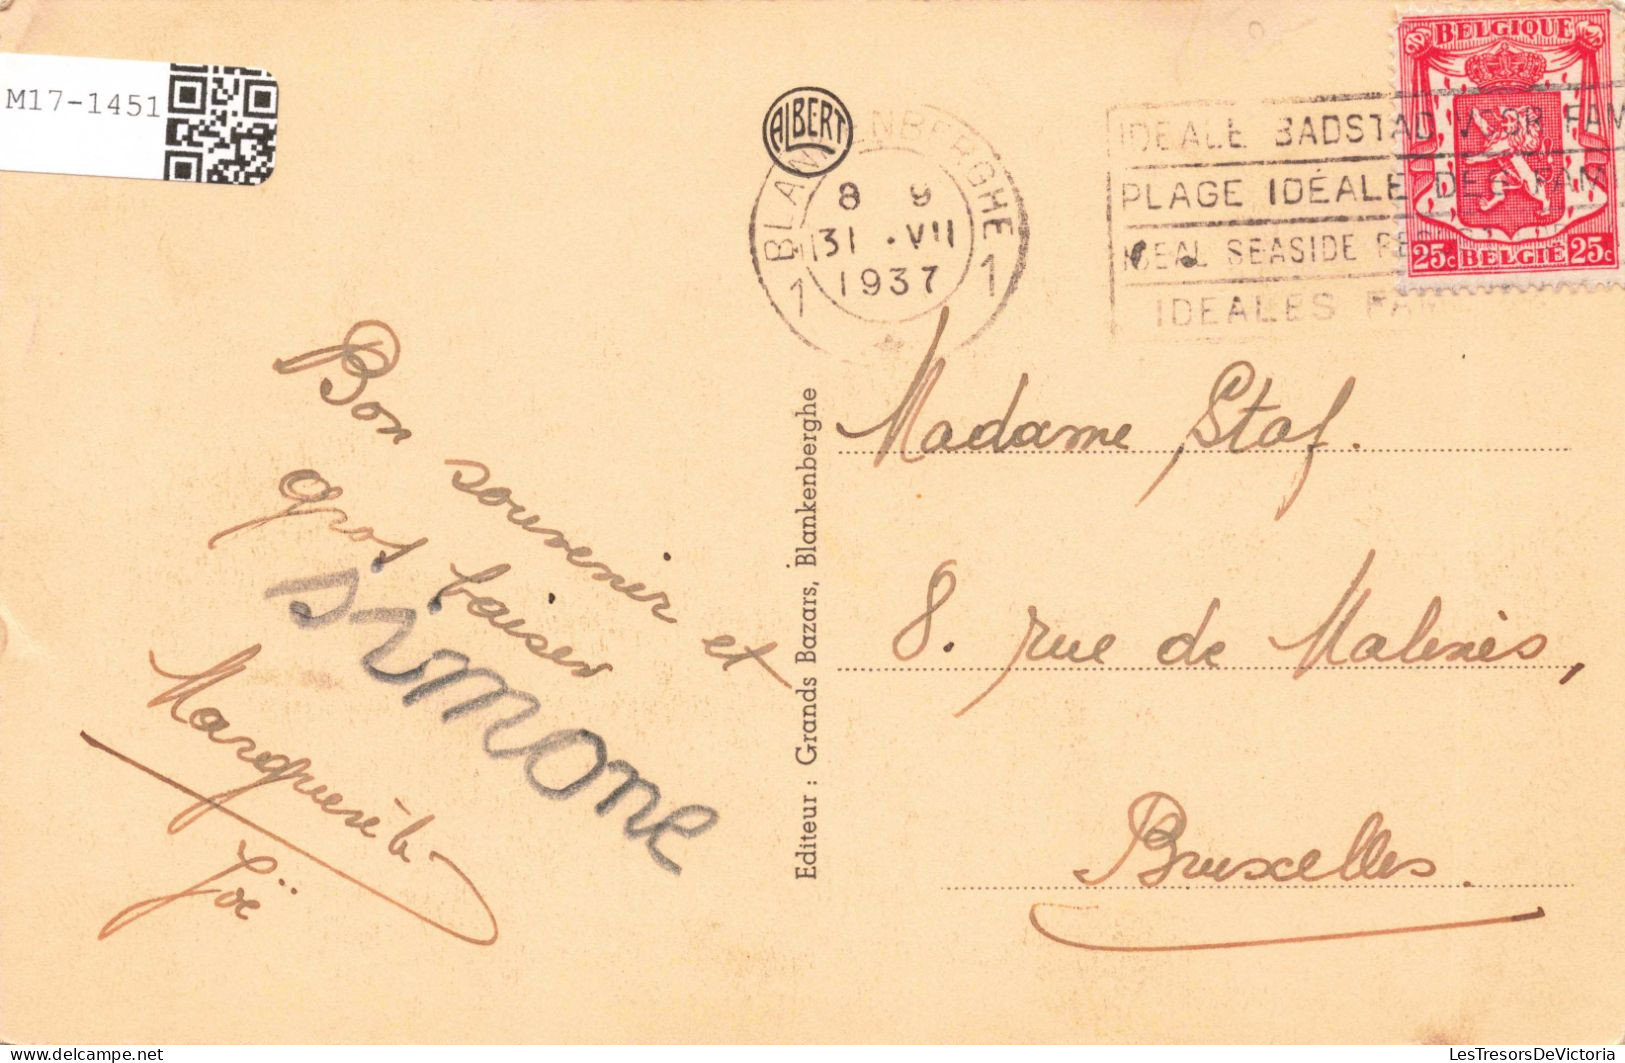 M17-1451
ALBERT
BLANKENBERGHE
8 9
31 . VII
1937
1 1
IDEALE BADSTAD VOOR FAM
PLAGE IDÉALE DES FAM
IDEAL SEASIDE
IDEALES FAM
BELGIQUE
25c BELGIË 25c
Bon souvenir et
gros baisers
Simone
Marguerite
Joë
Editeur : Grands Bazars, Blankenberghe
Madame Staf.
8. rue de Malines,
Bruxelles.
LesTresorsDeVictoria
delcampe.net